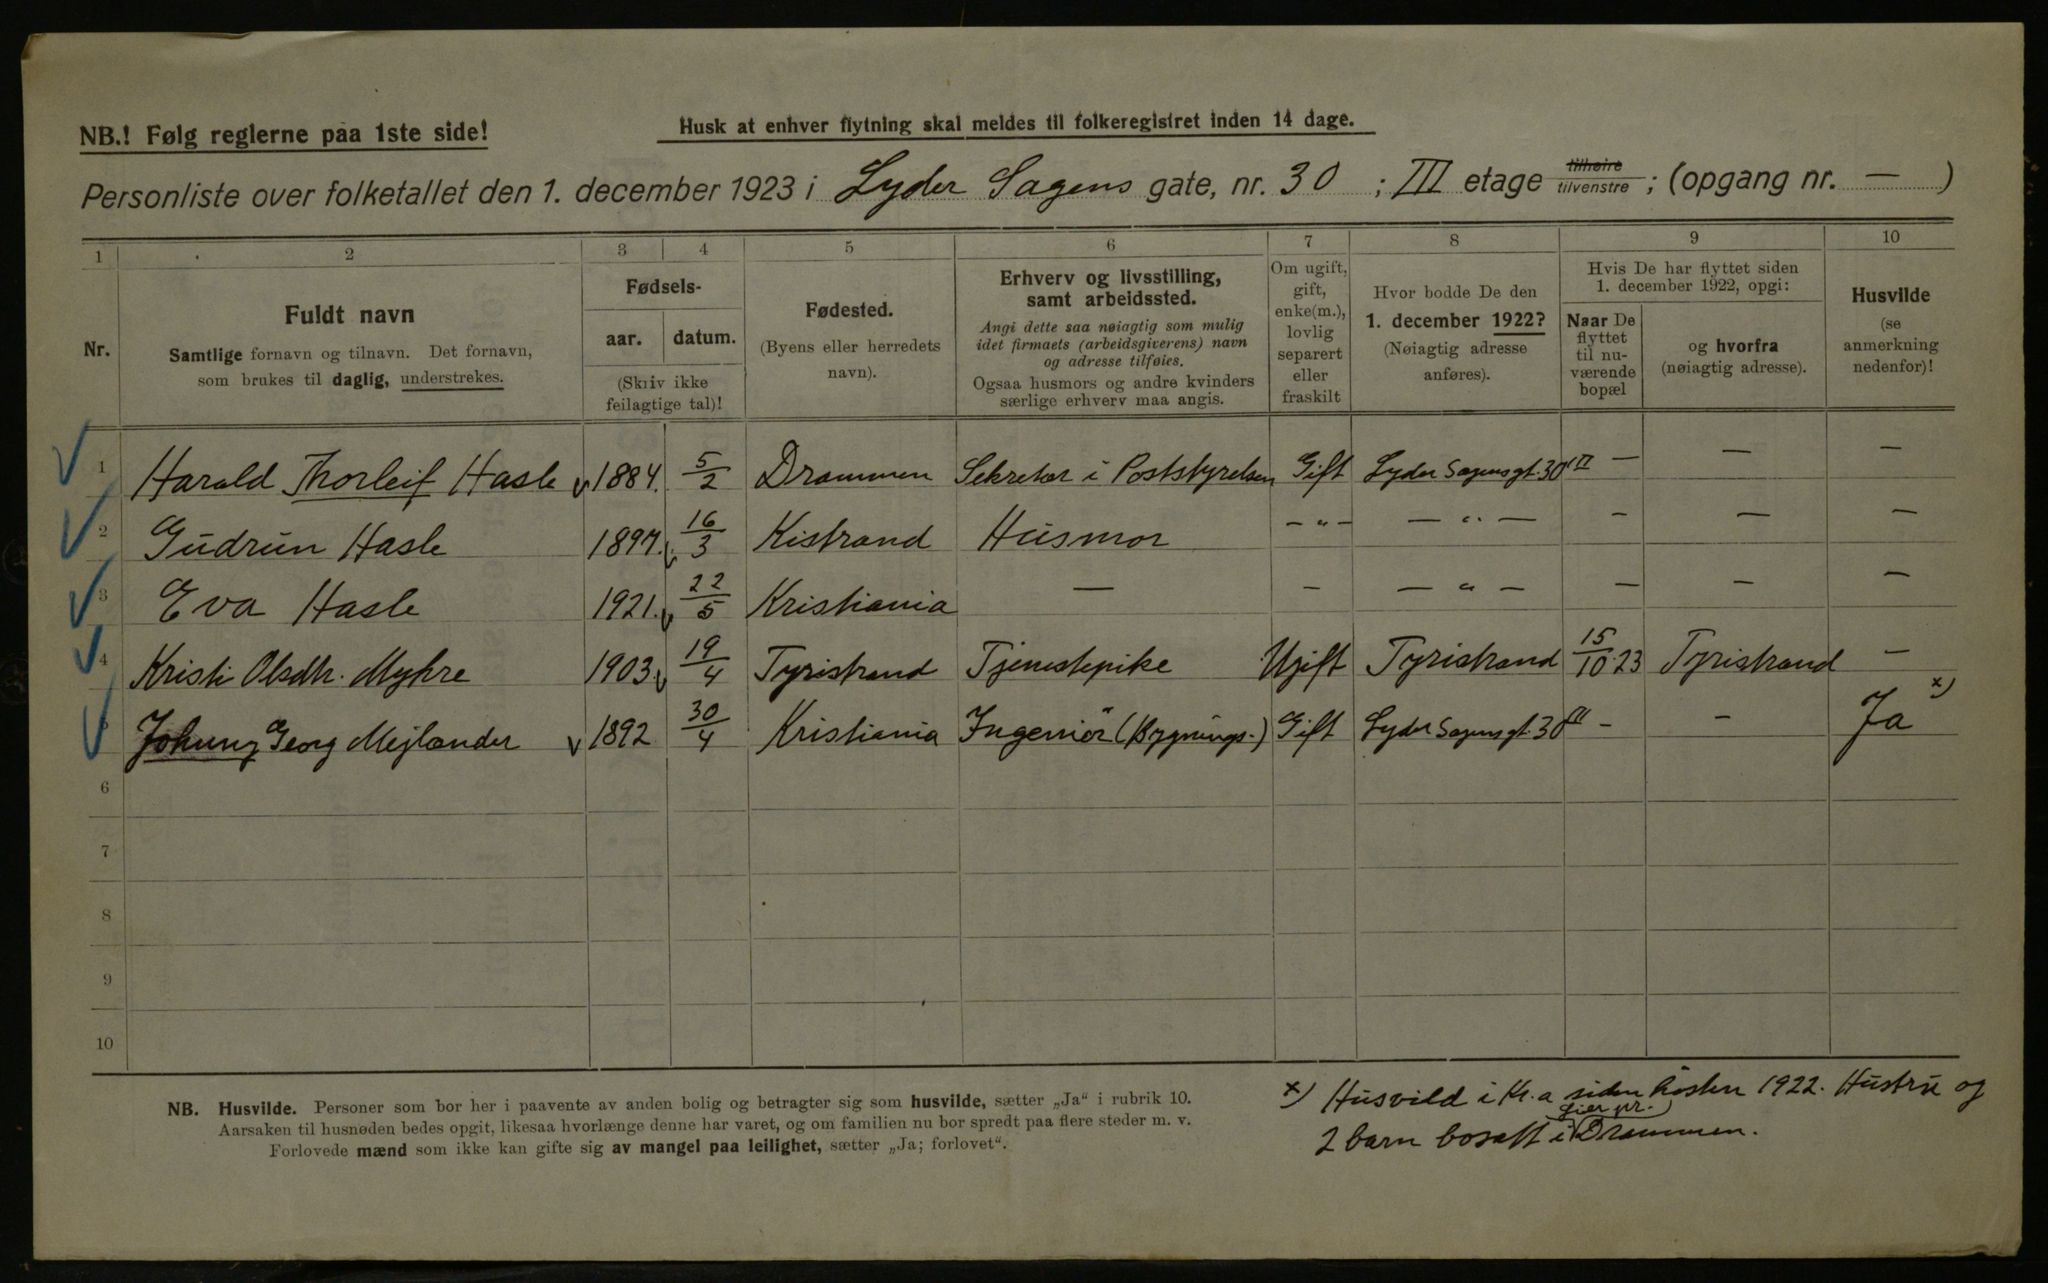 NB.! Følg reglerne paa 1ste side!
Husk at enhver flytning skal meldes til folkeregistret inden 14 dage.
Personliste over folketallet den 1. december 1923 i Lyder Sagens gate, nr. 30 ; III etage tilhøire tilvenstre ; (opgang nr. — )
1 2 3 4 5 6 7 8 9 10
Nr.
Fuldt navn
Samtlige fornavn og tilnavn. Det fornavn,
som brukes til daglig, understrekes.
Fødsels-
aar. datum.
(Skriv ikke
feilagtige tal)!
Fødested.
(Byens eller herredets
navn).
Erhverv og livsstilling,
samt arbeidssted.
Angi dette saa nøiagtig som mulig
idet firmaets (arbeidsgiverens) navn
og adresse tilføies.
Ogsaa husmors og andre kvinders
særlige erhverv maa angis.
Om ugift,
gift,
enke(m.),
lovlig
separert
eller
fraskilt
Hvor bodde De den
1. december 1922?
(Nøiagtig adresse
anføres).
Hvis De har flyttet siden
1. december 1922, opgi:
Naar De
flyttet
til nu-
værende
bopæl
og hvorfra
(nøiagtig adresse).
Husvilde
(se
anmerkning
nedenfor)!
1 Harald Thorleif Hasle 1884. 5/2 Drammen Sekretær i Poststyrelsen Gift Lyder Sagensgt. 30 III — — —
2 Gudrun Hasle 1897. 16/3 Kistrand Husmor — " — — " — — — —
3 Eva Hasle 1921. 22/5 Kristiania — — — " — — — —
4 Kristi Olsdtr. Myhre 1903 19/4 Tyristrand Tjenestepike Ugift Tyristrand 15/10 23 Tyristrand —
5 Johnny Georg Mejlænder 1892 30/4 Kristiania Ingeniør (Bygnings-) Gift Lyder Sagensgt. 30 III — — Ja x)
6
7
8
9
10
NB. Husvilde. Personer som bor her i paavente av anden bolig og betragter sig som husvilde, sætter „Ja" i rubrik 10.
Aarsaken til husnøden bedes opgit, likesaa hvorlænge denne har varet, og om familien nu bor spredt paa flere steder m. v.
Forlovede mænd som ikke kan gifte sig av mangel paa leilighet, sætter „Ja; forlovet".
x) Husvild i Kr.a siden høsten 1922. Hustru og
2 barn bosatt i Drammen.